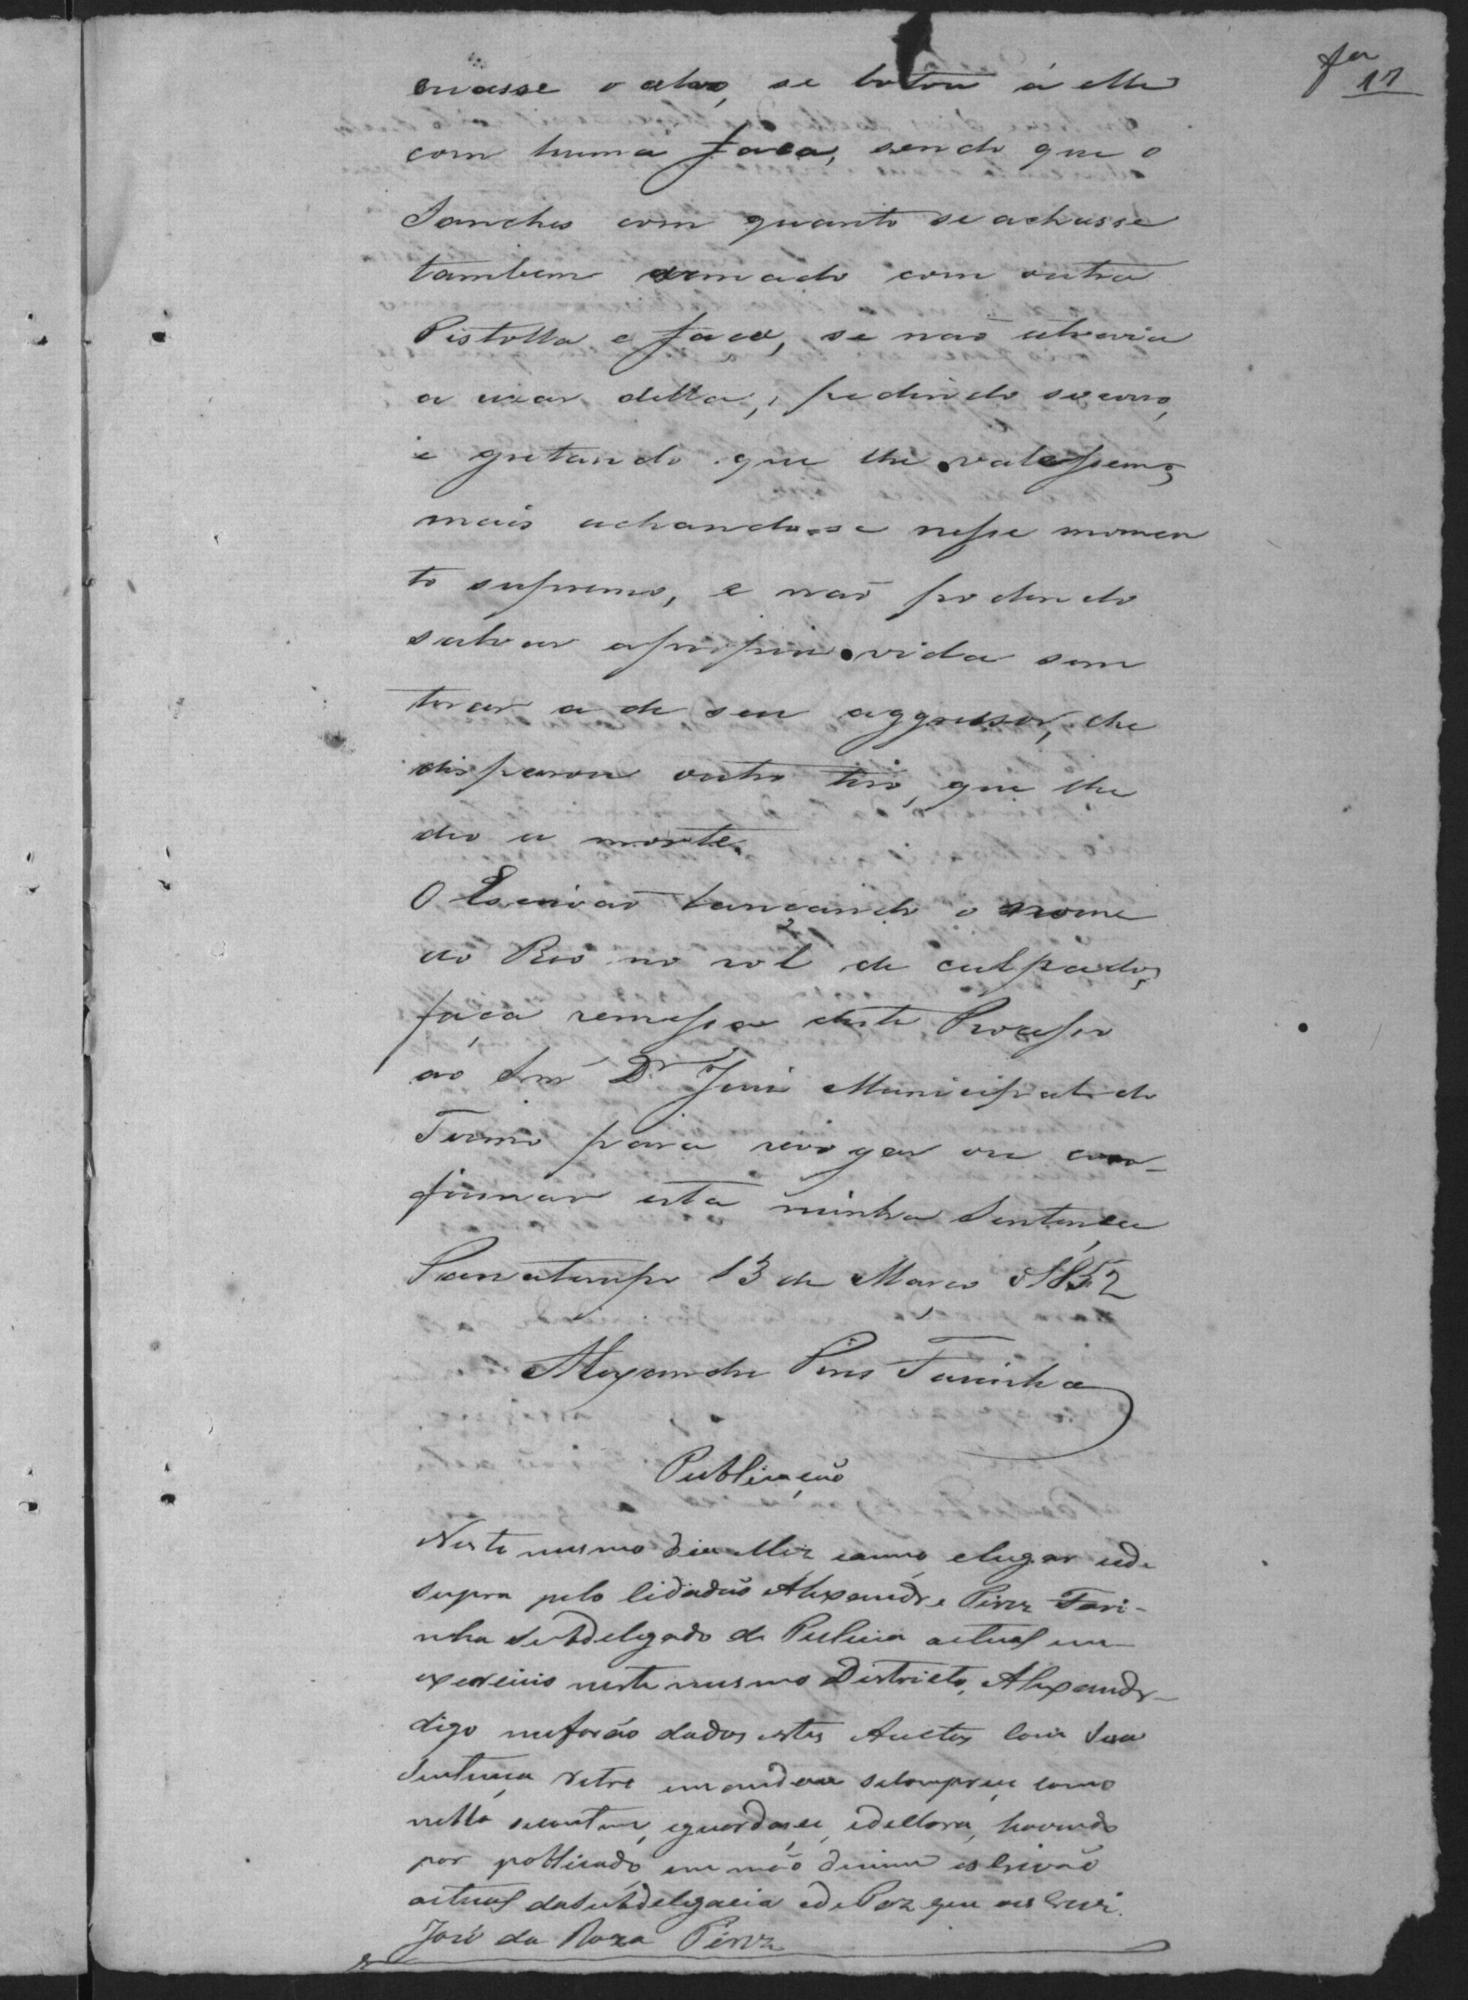 fa
17
errasse o alvo, se botou á elle
com huma faca, sendo que o
Sanches com quanto se achasse
tambem armado com outra
Pistolla e faca, se nao atrevia
a uzar della, pedindo socorro,
e gretando que lhe valessemos,
mais achando-se nesse momen
to supremo, e naõ podendo
salvar a propria vida sem
tirar a de seu aggressor, lhe
disparou outro tiro, que lhe
deo a morte.
O Escrivaõ lançando o nome
do Reo no rol de culpados,
faça remessa deste Processo
ao Snr Dr Juiz Municipal do
Termo para revogar ou con-
firmar esta minha Sentença
13 de Março d 1852
Alexandre Pires Farinha
Publicação
Neste mesmo dia Mez eanno, elugar ede
supra pelo Cidadão Alexandre Pirez Fari-
nha Subdelgado de Pulicia actual em
exercicio neste mesmo Districto, Alexandr-
digo meforão dados estes Auctos Com Sua
Sentença retro emandou secomprice como
nella secontem, eguardasse, edellara, havendo
por publicado em mão demim escrivão
actual daSubdelgacia edePaz que oes Crevi.
José da Roza Pirez